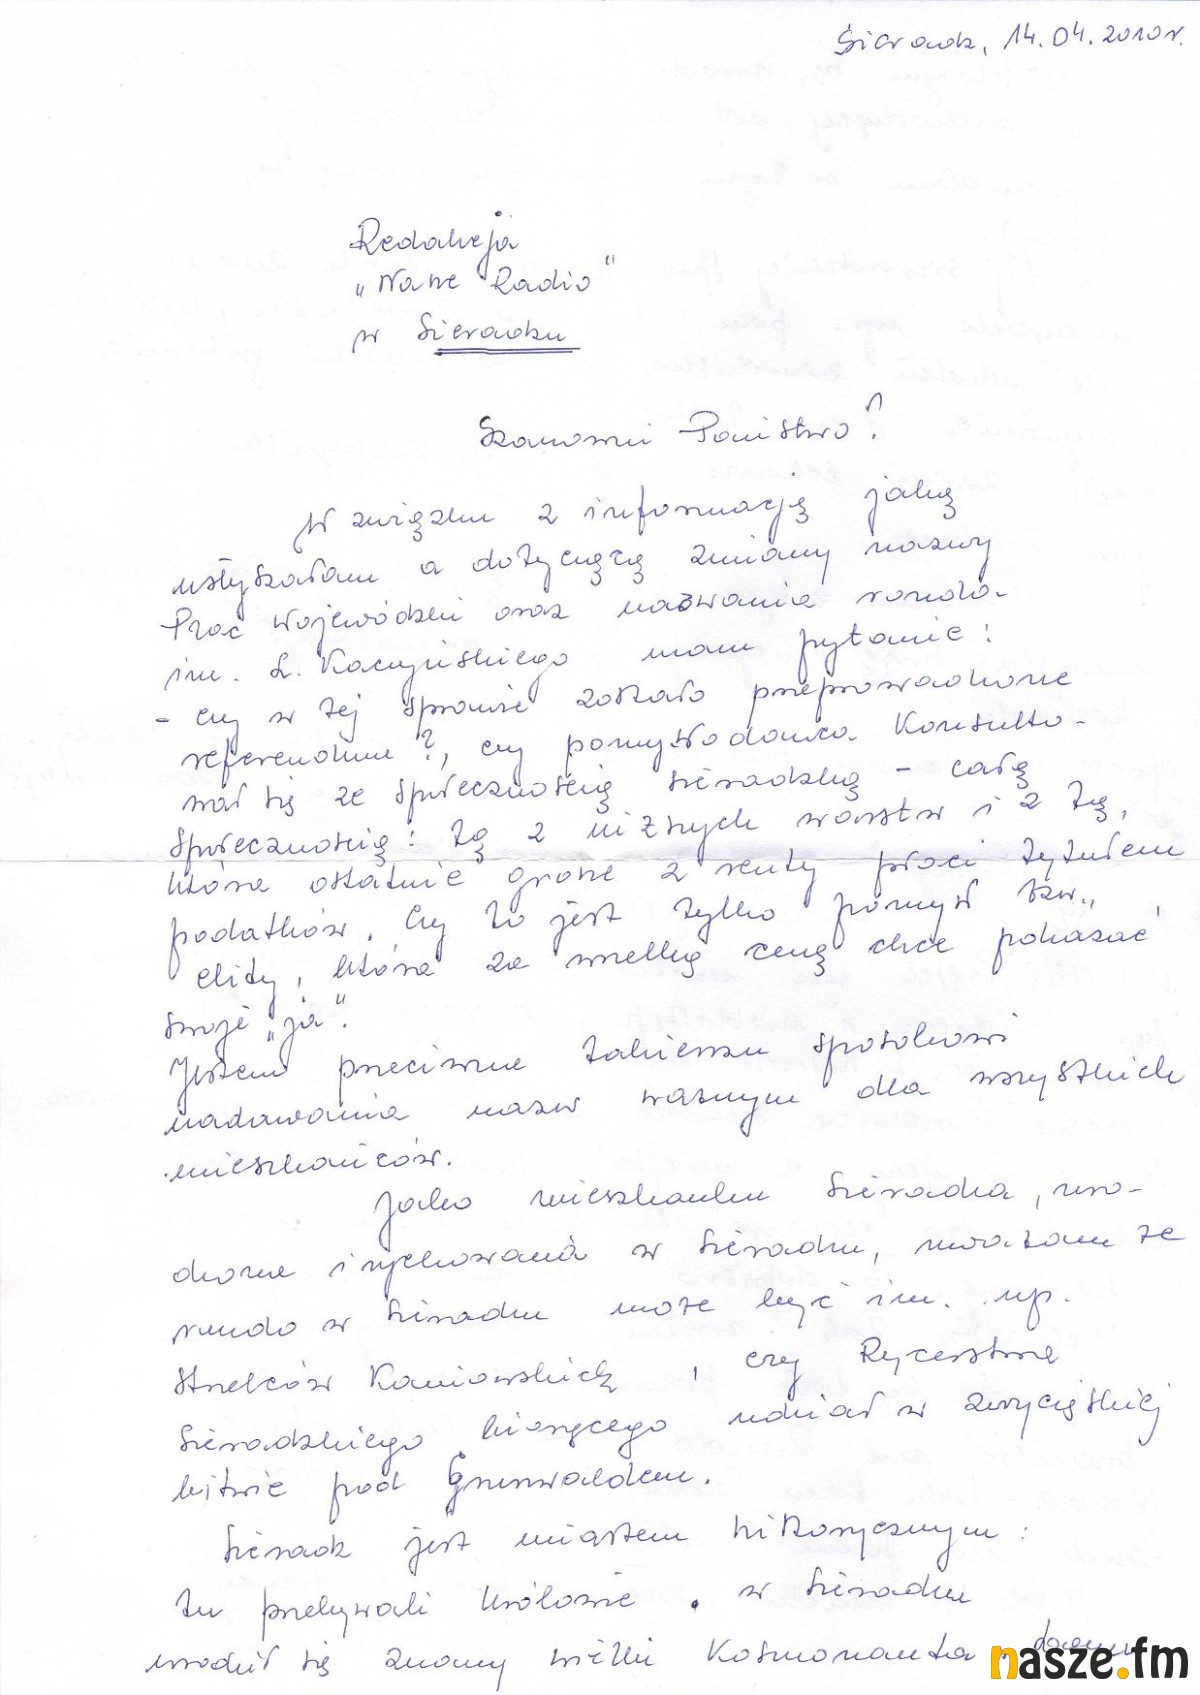 Sieradz, 14.04.2010r.
Redakcja
„Nasze Radio”
w Sieradzu
Szanowni Państwo!
W związku z informacją jaką
usłyszałam a dotyczącą zmiany nazwy
Plac Wojewódzki oraz nazwania ronda
im. L. Kaczyńskiego mam pytanie:
- czy w tej sprawie zostało przeprowadzone
referendum?, czy pomysłodawca konsulto-
wał się ze społecznością sieradzką - całą
społecznością: tą z niższych warstw i z tą,
która ostatnie grosze z renty płaci tytułem
podatków. Czy to jest tylko pomysł tzw.„
elity, która za wszelką cenę chce pokazać
swoje „ja”.
Jestem przeciwna takiemu sposobowi
nadawania nazw ważnym dla wszystkich
mieszkańców.
Jako mieszkanka Sieradza, uro-
dzona i wychowana w Sieradzu, uważam że
rondo w Sieradzu może być im. np.
Strzelców Kaniowskich, czy Rycerstwa
Sieradzkiego biorącego udział w zwycięskiej
bitwie pod Grunwaldem.
Sieradz jest miastem historycznym:
tu przebywali królowie. w Sieradzu
urodził się znany wielki Kosmonauta
nasze.fm